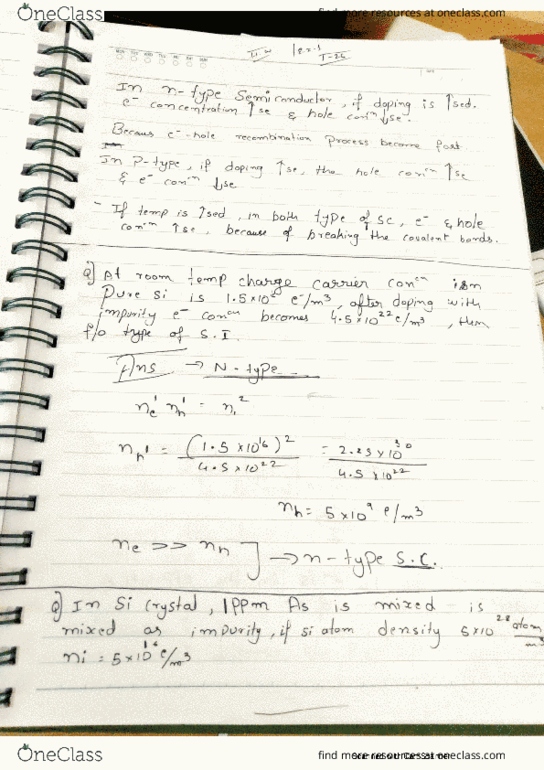 OneClass
find more resources at oneclass.com
In n-type Semiconductor, if doping is ↑sed.
e⁻ concentration ↑se & hole conⁿ ↓se.
Becaus e⁻-hole recombination process become fast.
In P-type, if doping ↑se, the hole conⁿ ↑se
& e⁻ conⁿ ↓se
- If temp is ↑sed, in both type of sc, e⁻ & hole
conⁿ ↑se, because of breaking the covalent bonds.
Q] At room temp charge carrier conⁿ is
Pure Si is 1.5×10¹⁶ e⁻/m³, after doping with
impurity e⁻ conⁿ becomes 4.5×10²² e/m³, then
f/o type of S.I.
Ans → N-type
nₑ' nₕ' = nᵢ²
nₕ' = (1.5×10¹⁶)² / 4.5×10²² = 2.25×10³⁰ / 4.5×10²²
nₕ = 5×10⁹ e/m³
nₑ >> nₕ ] → n-type S.C.
Q] In Si crystal, 1 PPm As is mixed is
mixed as impurity, if si atom density 5×10²⁸ atom/m³
ni = 5×10¹⁶ e/m³
OneClass
find more resources at oneclass.com